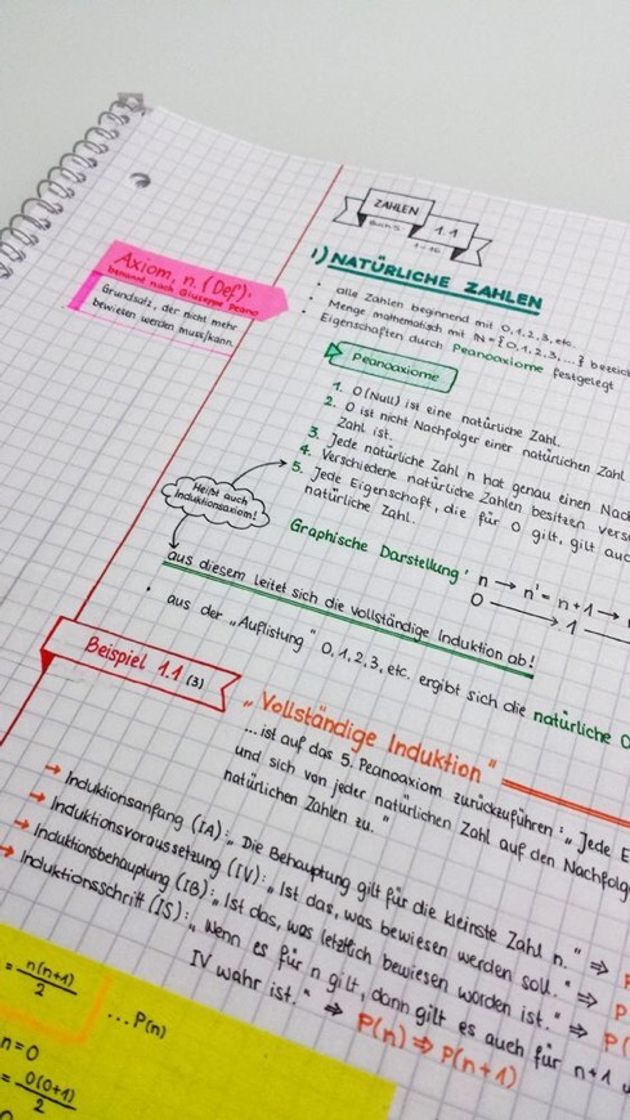 ZAHLEN
Buch S.
1.1
1-16
1) NATÜRLICHE ZAHLEN
Axiom, n. (Def):
benannt nach Giuseppe Peano
Grundsatz, der nicht mehr
bewiesen werden muss/kann.
• alle Zahlen beginnend mit 0,1,2,3, etc.
• Menge mathematisch mit N = {0,1,2,3,...} bezeich
• Eigenschaften durch Peanoaxiome festgelegt
Peanoaxiome
1. 0 (Null) ist eine natürliche Zahl.
2. 0 ist nicht Nachfolger einer natürlichen Zahl
Zahl ist.
3. Jede natürliche Zahl n hat genau einen Nach
4. Verschiedene natürliche Zahlen besitzen vers
5. Jede Eigenschaft, die für 0 gilt, gilt auc
natürliche Zahl.
Heißt auch
Induktionsaxiom!
Graphische Darstellung: n → n' = n+1 →
0 → 1
aus diesem leitet sich die vollständige Induktion ab!
• aus der „Auflistung" 0,1,2,3, etc. ergibt sich die natürliche O
Beispiel 1.1 (3)
„Vollständige Induktion"
...ist auf das 5. Peanoaxiom zurückzuführen: „Jede E
und sich von jeder natürlichen Zahl auf den Nachfolg
natürlichen Zahlen zu."
→ Induktionsanfang (IA): „Die Behauptung gilt für die kleinste Zahl n." ⇒ P
→ Induktionsvoraussetzung (IV): „Ist das, was bewiesen werden soll." ⇒ P
→ Induktionsbehauptung (IB): „Ist das, was letztlich bewiesen worden ist." ⇒ P(
→ Induktionsschritt (IS): „Wenn es für n gilt, dann gilt es auch für n+1
IV wahr ist." ⇒ P(n) ⇒ P(n+1)
= n(n+1)/2 ...P(n)
n=0
= 0(0+1)/2